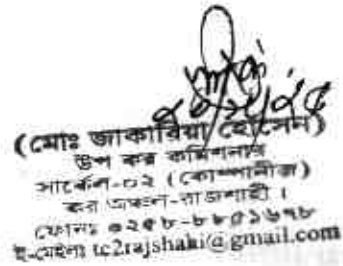 (মোঃ জাকারিয়া হোসেন)
উপ কর কমিশনার
সার্কেল-০২ (কোম্পানীজ)
কর অঞ্চল-রাজশাহী।
ফোনঃ
ই-মেইলঃ tc2rajshahi@gmail.com